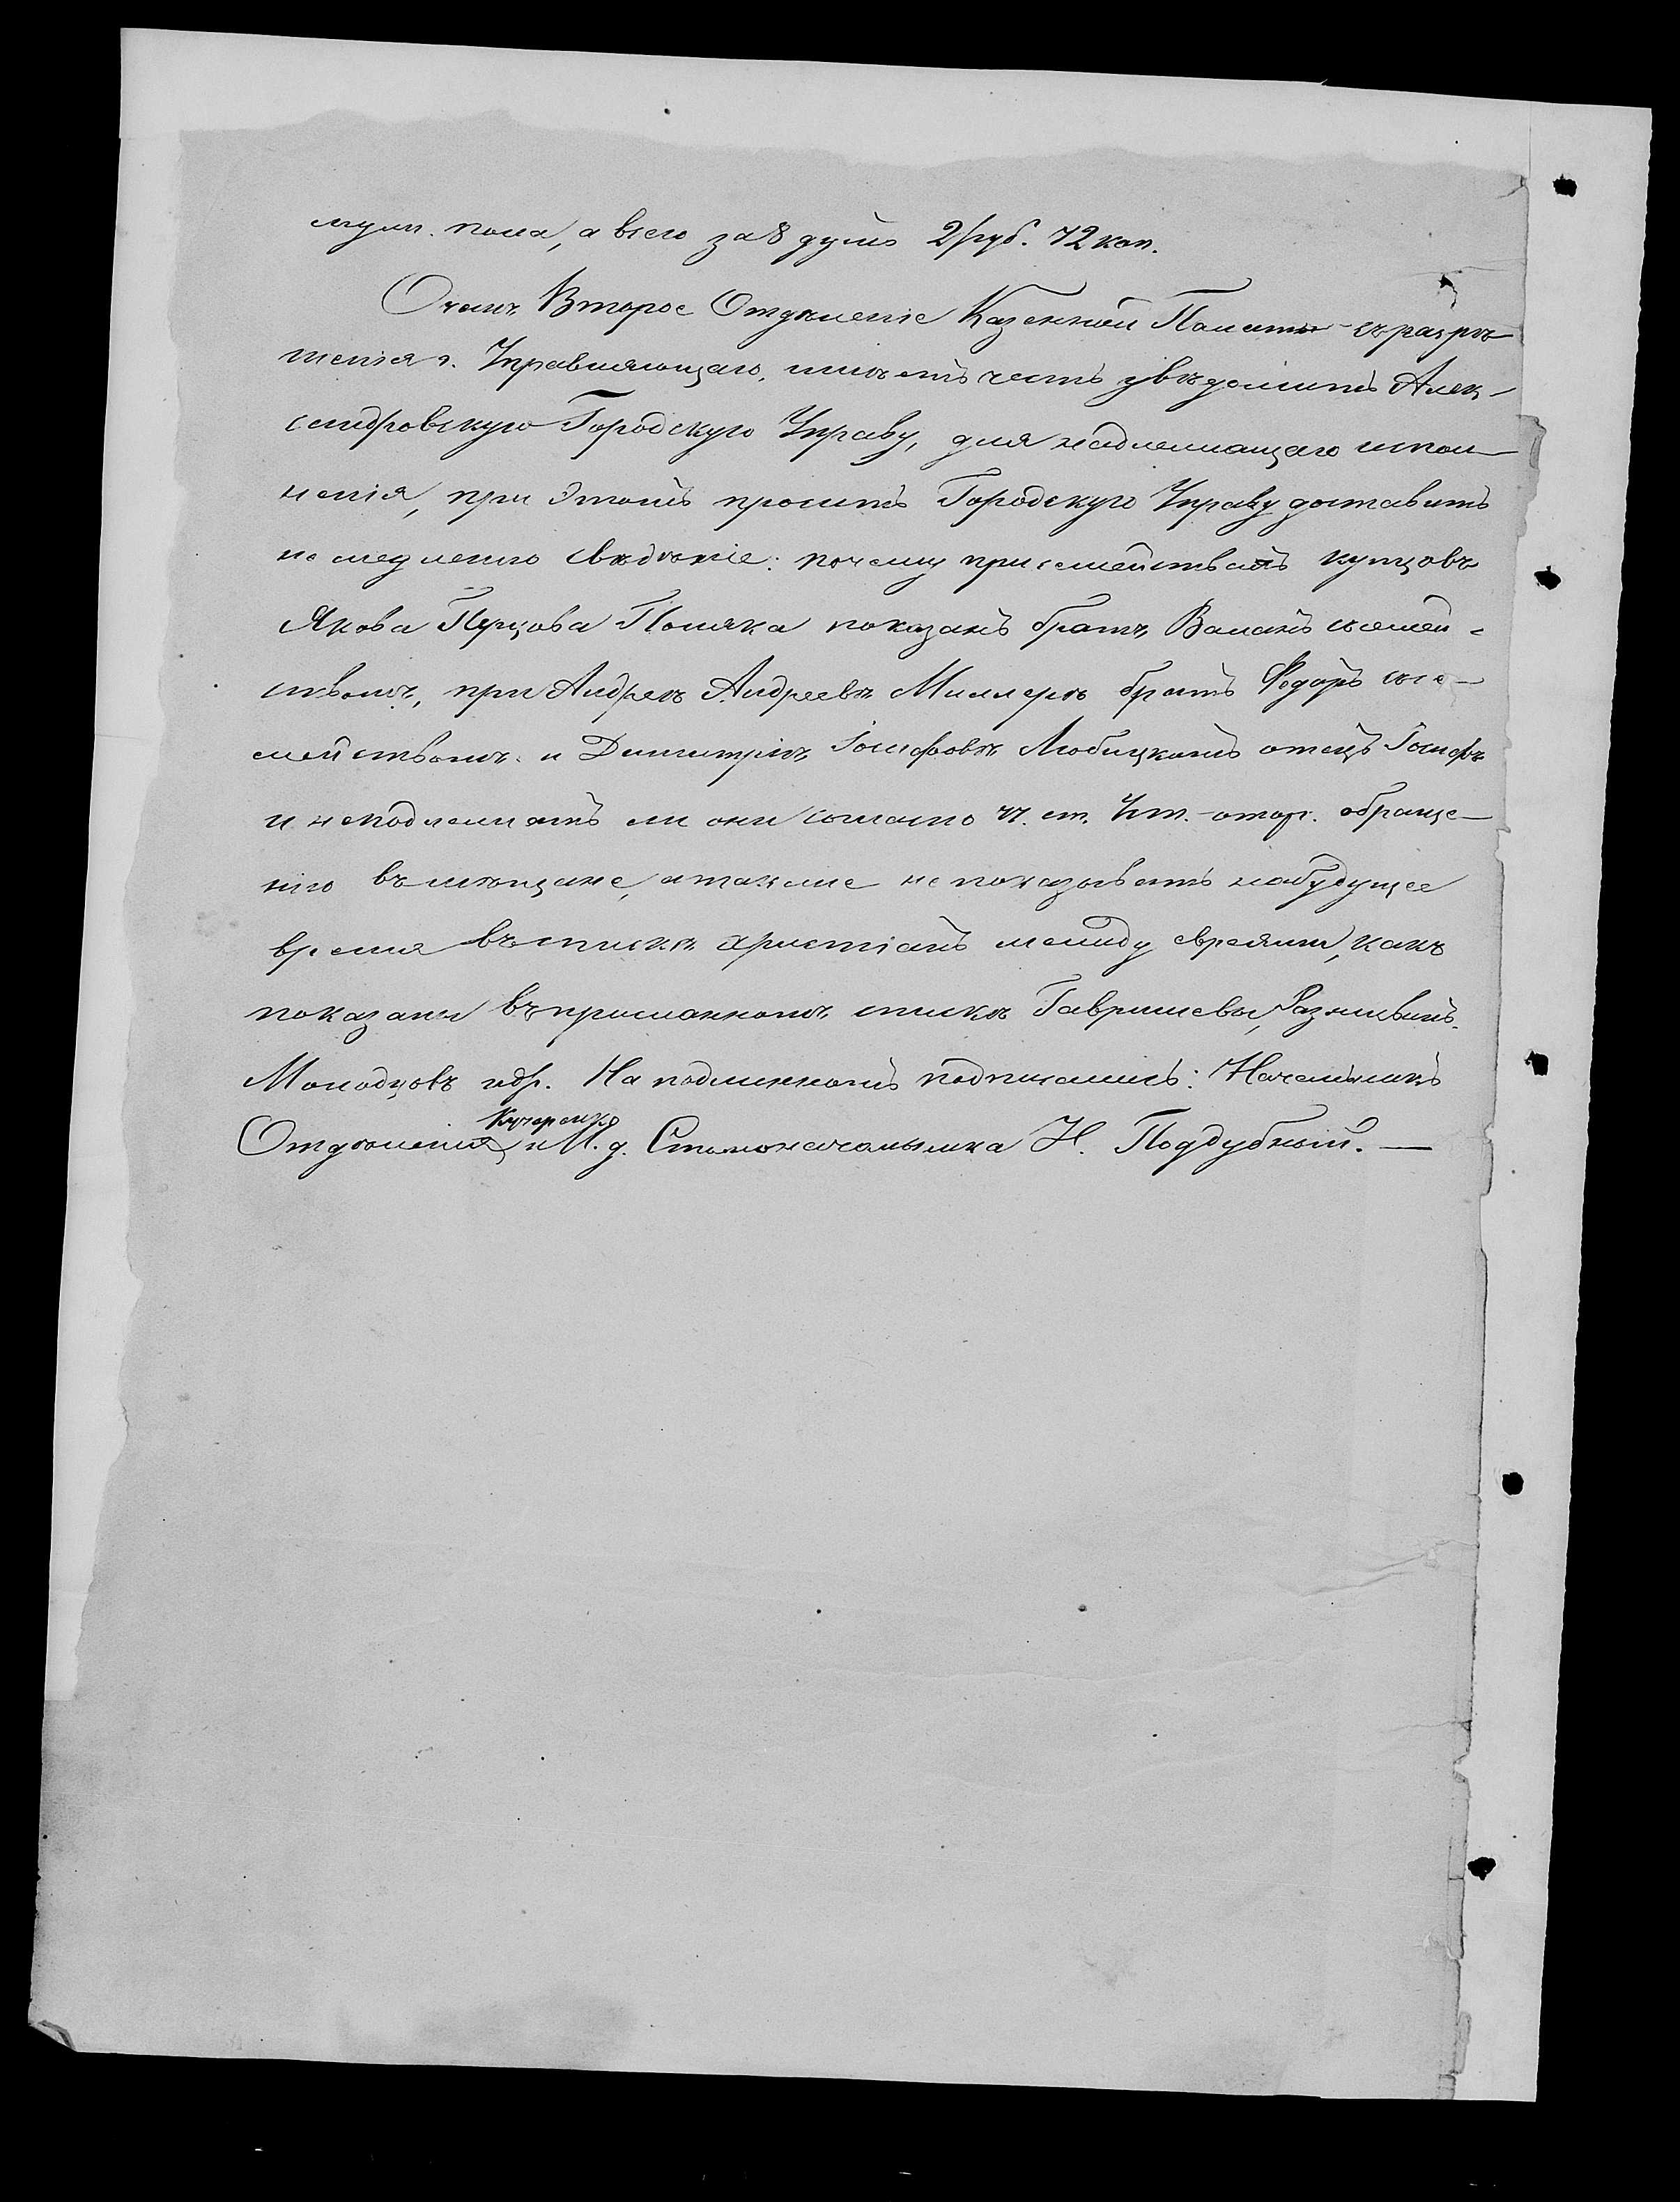 муж. пола, а всего за 8 душъ 2 руб. 72 коп.
О чемъ Второе Отдѣленіе Казенной Палаты съ разрѣ-
шенія г. Управляющаго, имѣетъ честь увѣдомить Алек-
сандровскую Городскую Управу, для надлежащаго испол-
ненія, при этомъ проситъ Городскую Управу доставить
не медленно свѣдѣніе: почему при семействахъ купцовъ
Якова Перцова Поляка показанъ братъ Вольмъ съ семей-
ствомъ, при Андреѣ Андреевѣ Миллерѣ братъ Федоръ съ се-
мействомъ и Димитріѣ Іосифовѣ Любицкомъ отецъ Іосифъ
и не подлежатъ ли они согласно 77. ст. Уст. обраще-
нію въ мѣщане, а также не показывать на будущее
время въ спискѣ христіанъ между евреями, какъ
показаны въ присланномъ спискѣ Гавришевы,
Молодцовъ и др. На подлинномъ подписались: Начальникъ
Кучеренко
Отдѣленія и И. д. Столоначальника Н. Поддубный. —